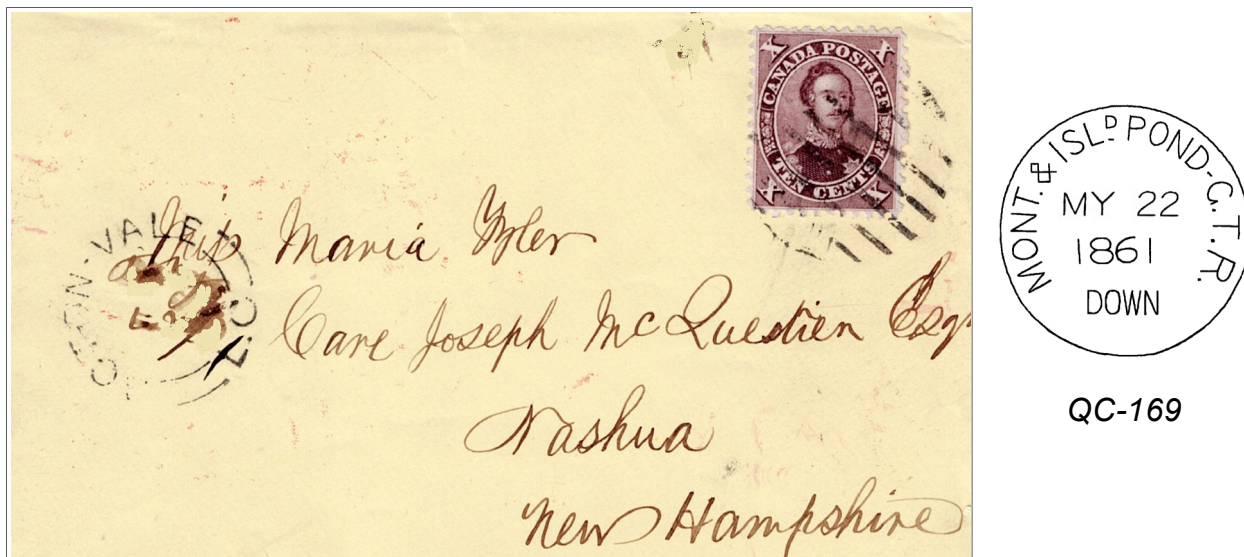 X CANADA POSTAGE X
X TEN CENTS X
Miss Maria Tyler
Care Joseph McQuestien Esqr
Nashua
New Hampshire
MONT. & ISLD POND-G.T.R.
MY 22
1861
DOWN
QC-169